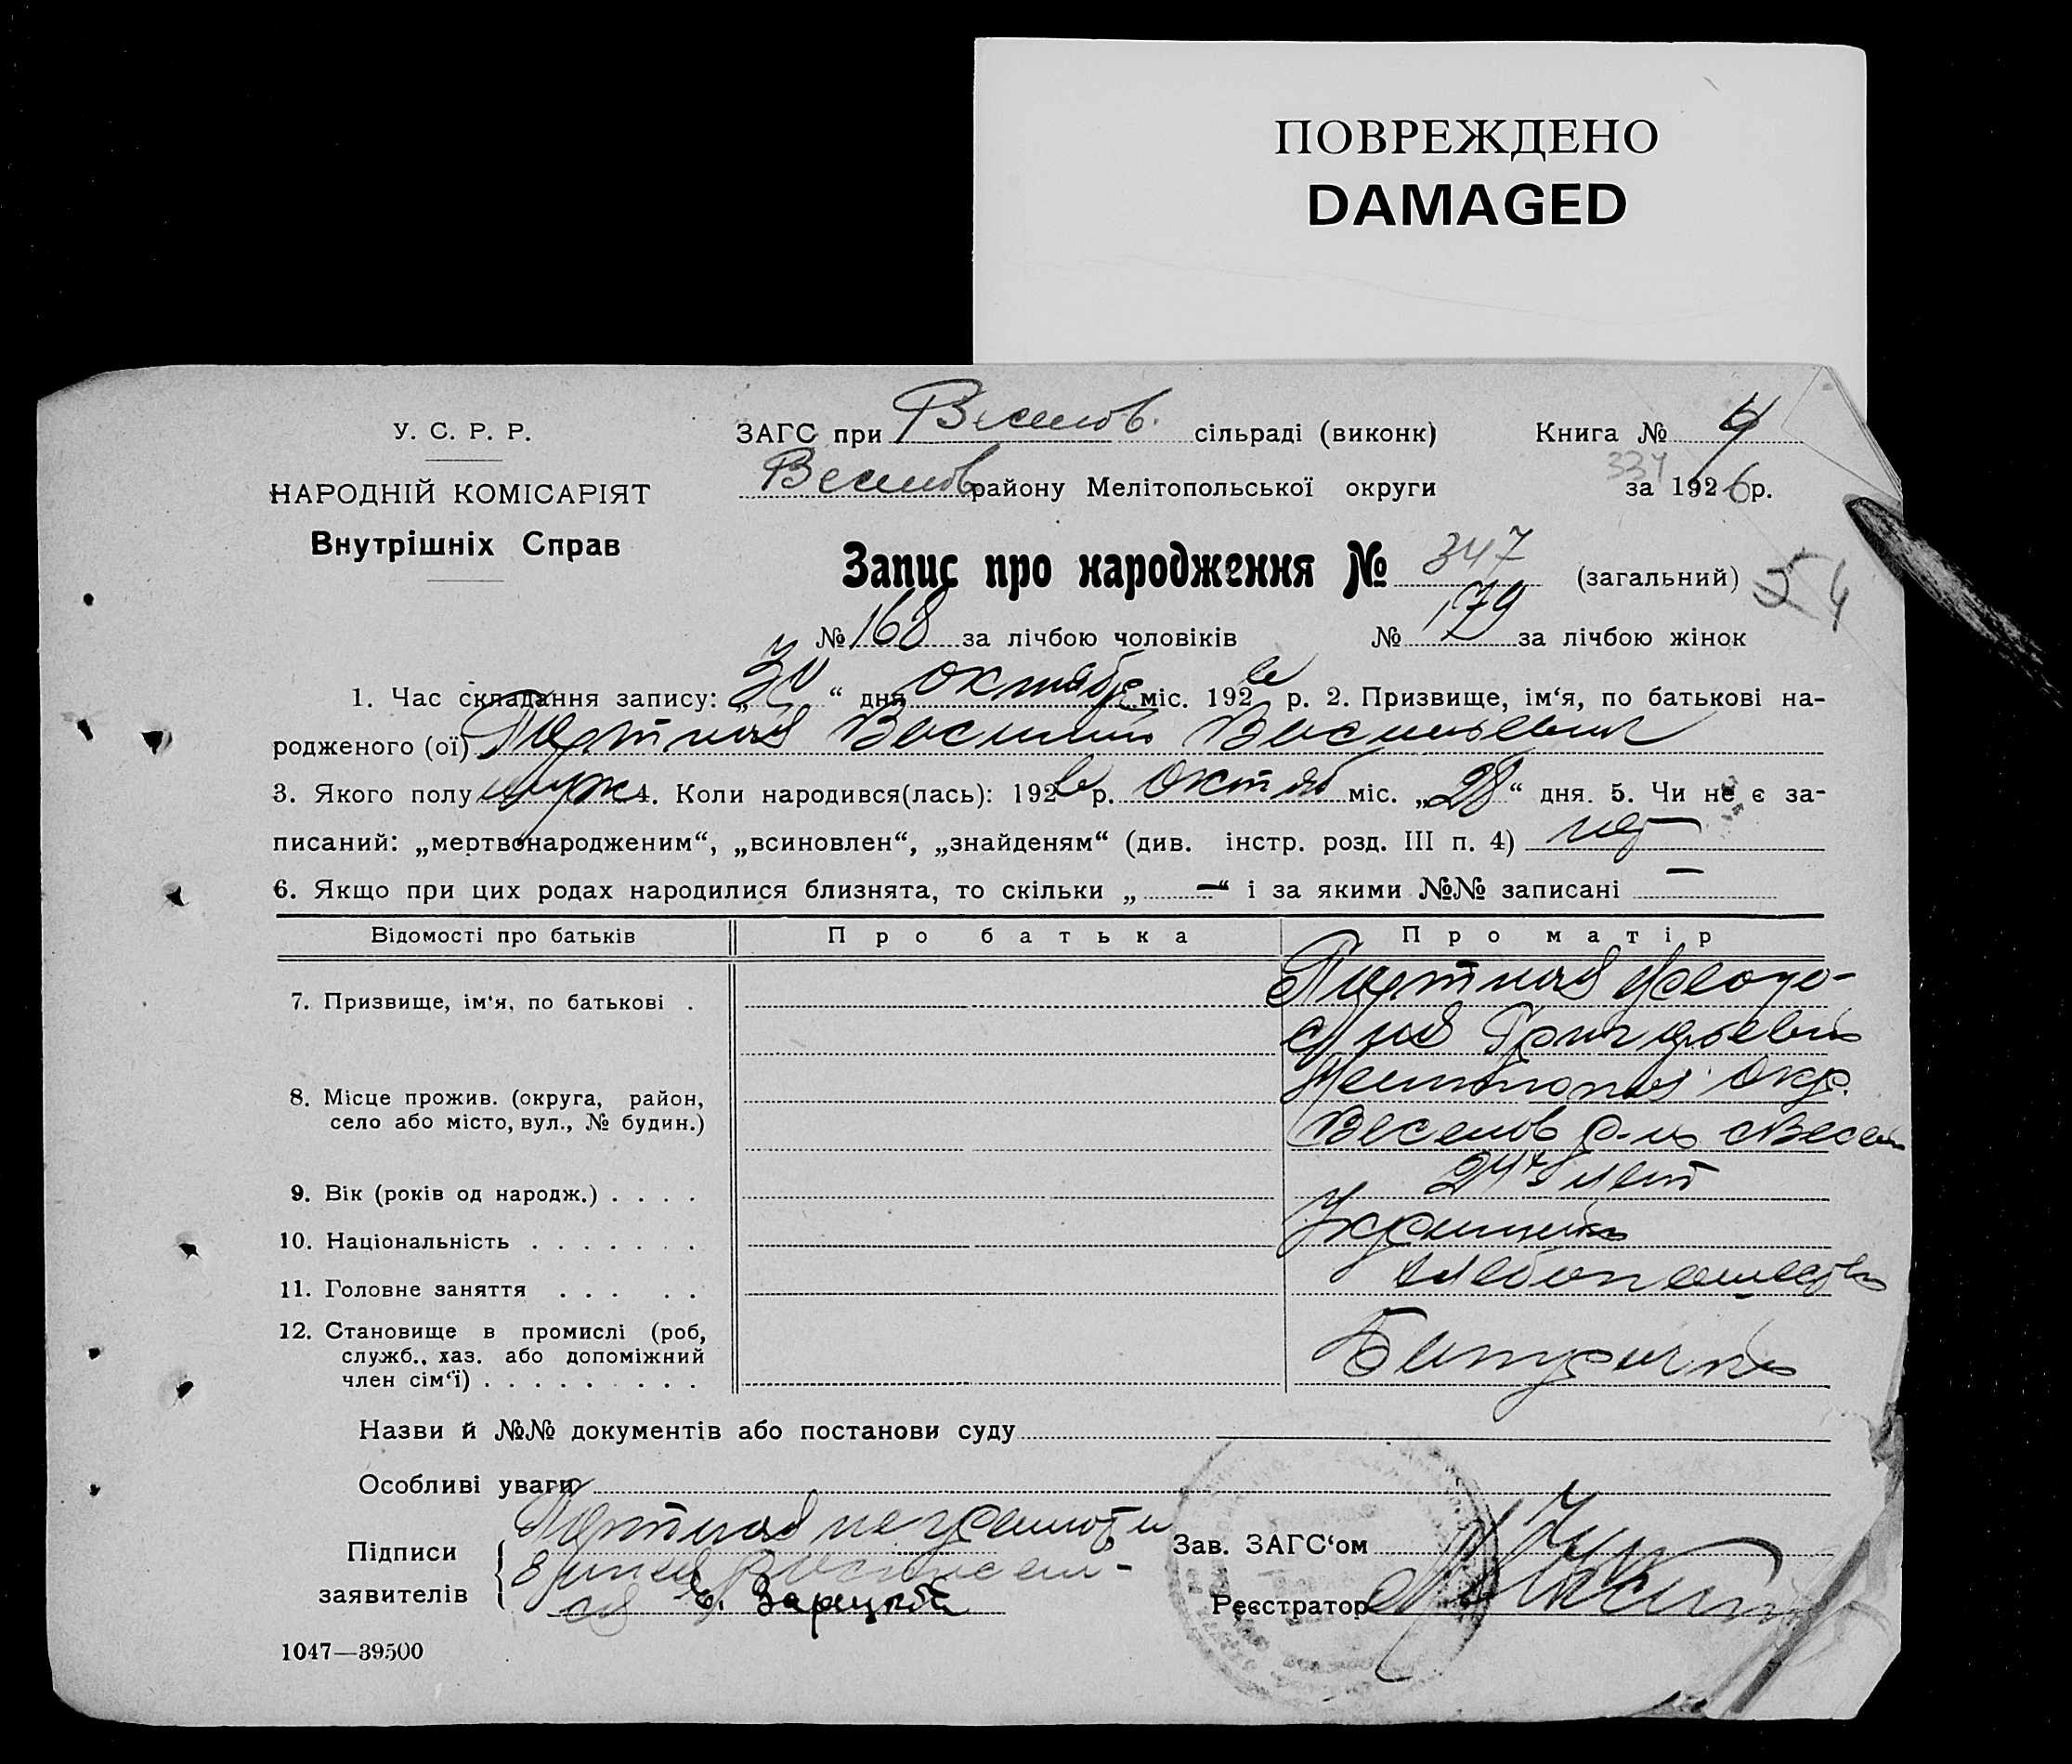 ПОВРЕЖДЕНО
DAMAGED
У. С. Р. Р.
НАРОДНІЙ КОМІСАРІЯТ
Внутрішніх Справ
ЗАГС при Веселов. сільраді (виконк)
Книга № 4
Веселов району Мелітопольської округи
334
за 1926 р.
Запис про народження № 347 (загальний) 54
№ 168 за лічбою чоловіків № 179 за лічбою жінок
1. Час складання запису: „30“ дня октября міс. 1926 р. 2. Призвище, ім‘я, по батькові на-
родженого (ої) Портная Василий Васильевич
3. Якого полу муж 4. Коли народився(лась): 1926 р. октяб міс. „28“ дня. 5. Чи не є за-
писаний: „мертвонародженим“, „всиновлен“, „знайденям“ (див. інстр. розд. III п. 4) нет
6. Якщо при цих родах народилися близнята, то скільки „ — “ і за якими №№ записані —
Відомості про батьків Про батька Про матір
7. Призвище, ім‘я, по батькові . Портная Феодо-
сия Григорьевна
8. Місце прожив. (округа, район, Мелитопол окр.
село або місто, вул., № будин.) Веселов р-на с Весел
9. Вік (років од народж.) . . . . 24 лет
10. Національність . . . . . . . Украинка
11. Головне заняття . . . . . хлебопашество
12. Становище в промислі (роб,
служб., хаз. або допоміжний
член сім‘ї) . . . . . . . . .
Назви й №№ документів або постанови суду
Особливі уваги
Підписи
заявителів
Портная неграмотн
з неё расписал-
ся Зарецкий
Зав. ЗАГС‘ом
Реєстратор
1047—39500